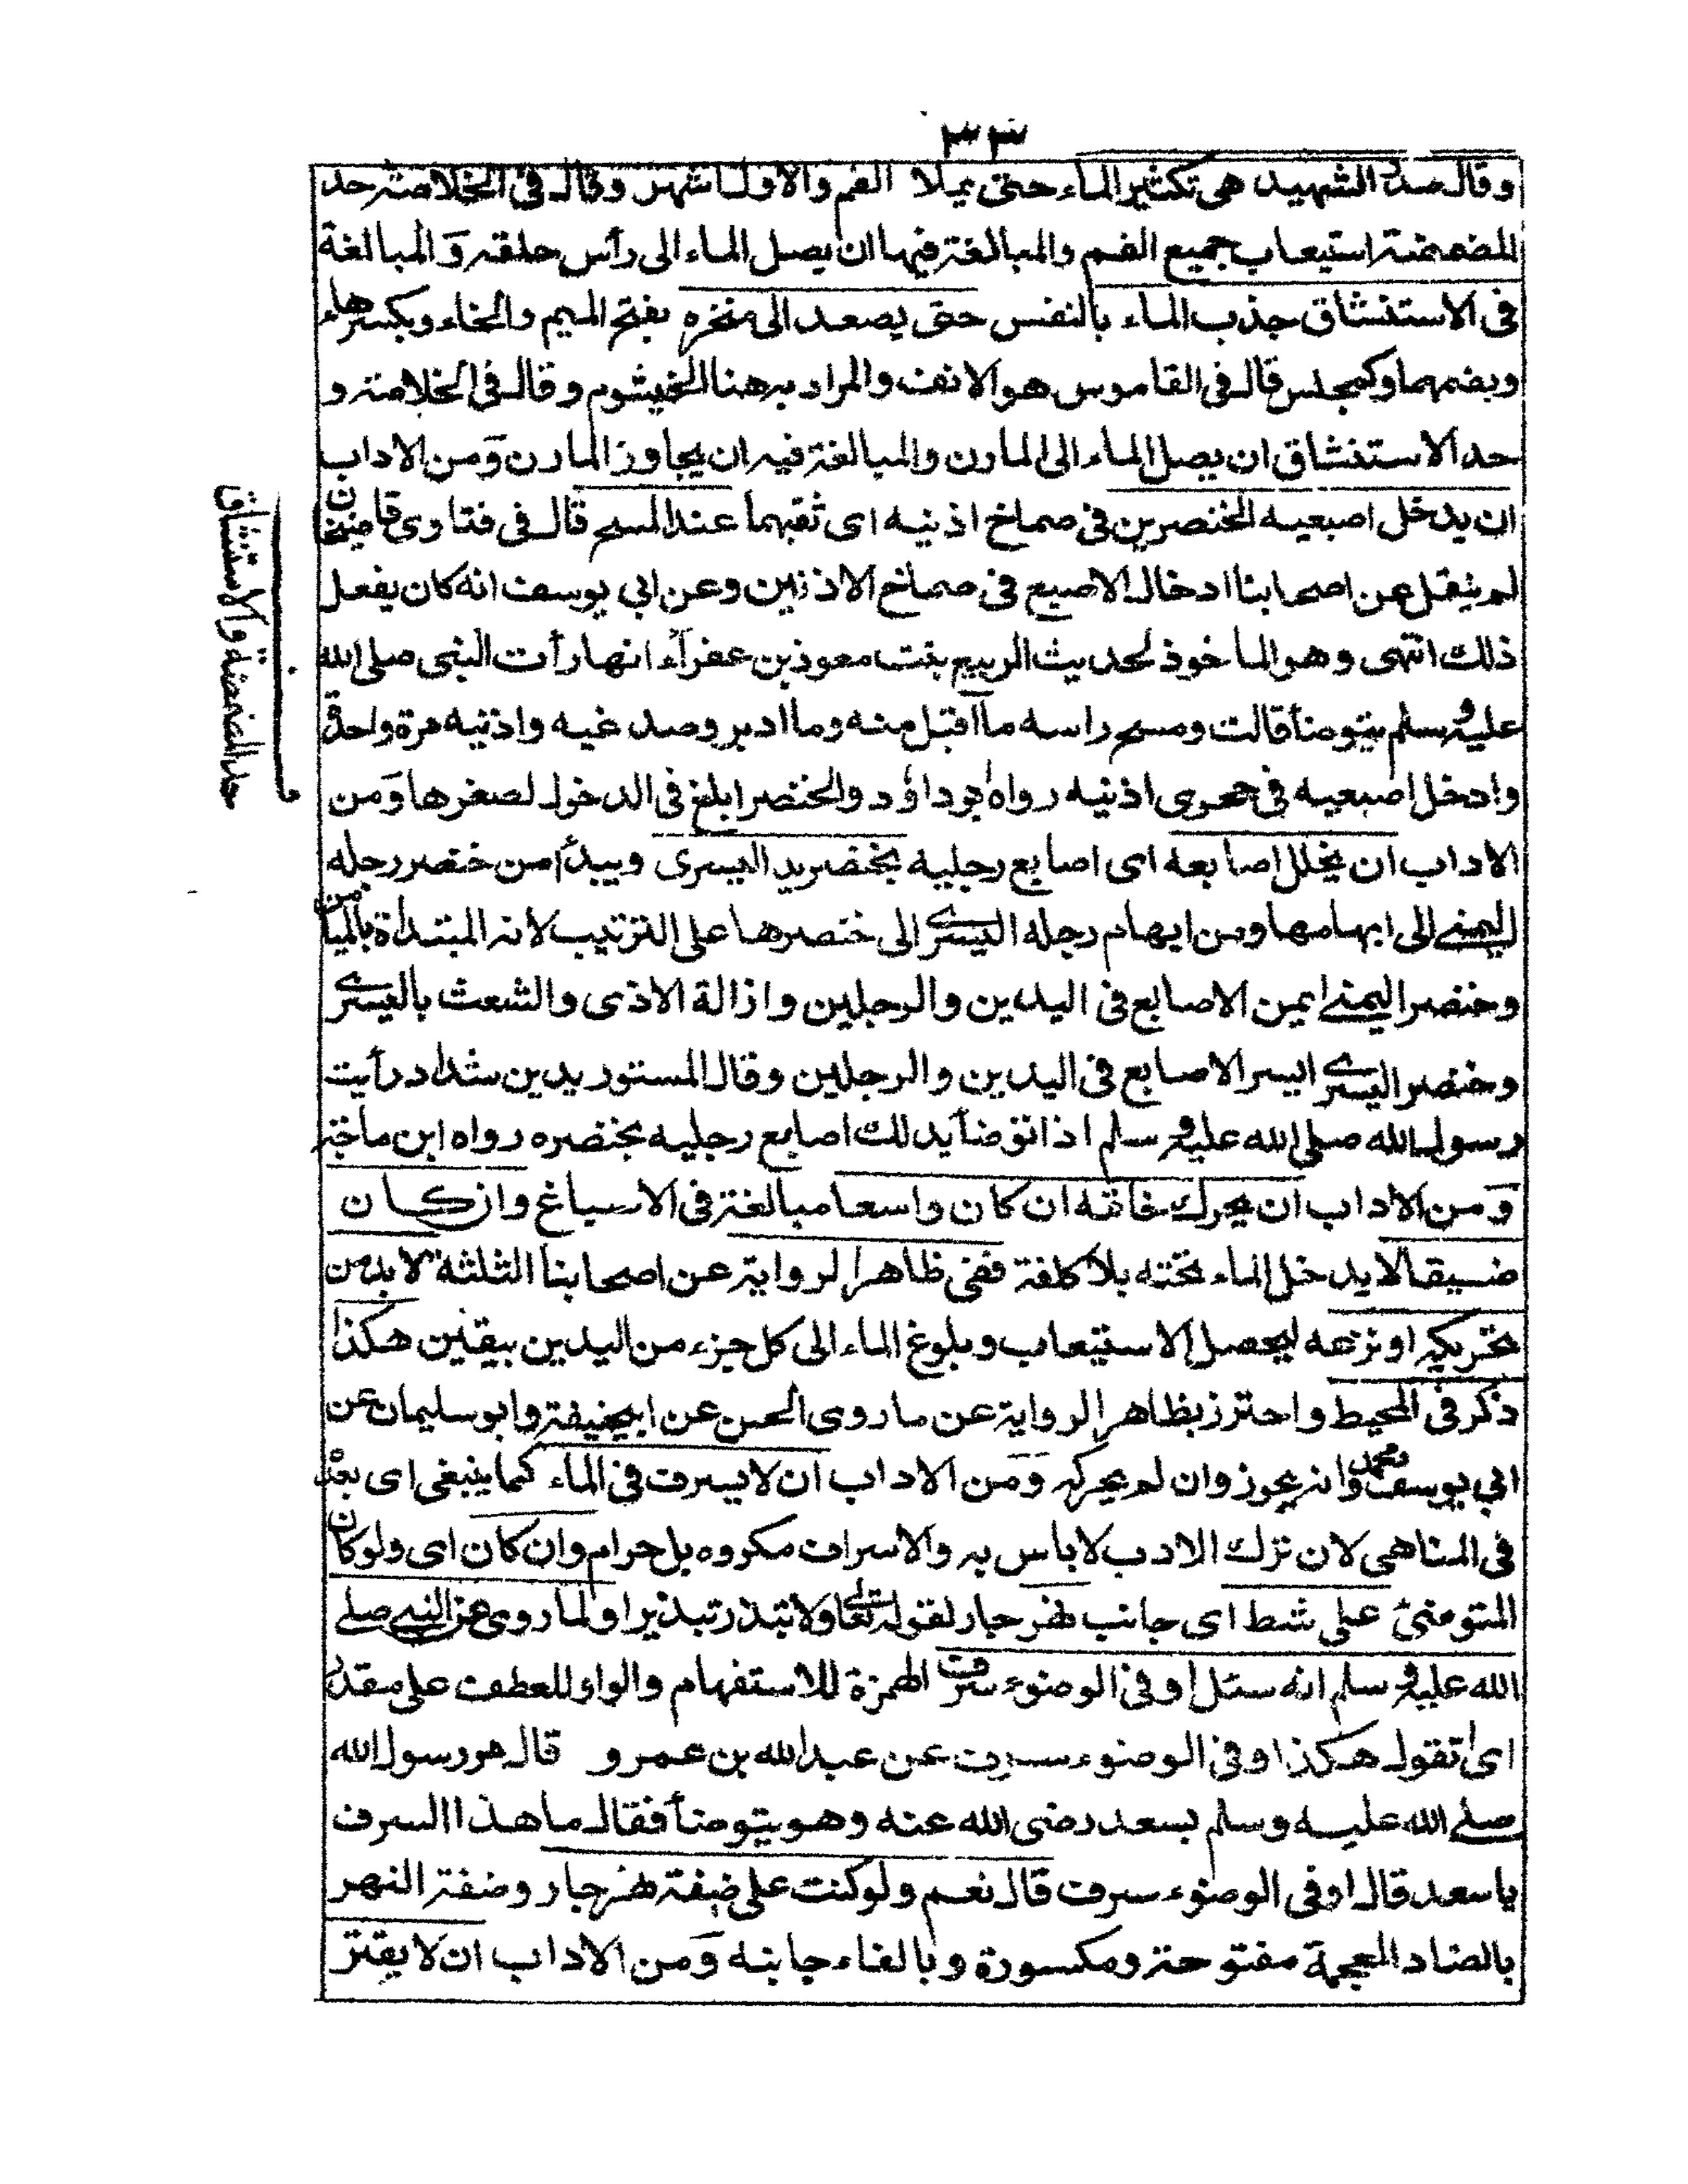 ٣٣
وقال صدر الشهيد هى تكثير الماء حتى يملا الفم والاول اشهر وقال فى الخلاصة حد
المضمضة استيعاب جميع الفم والمبالغة فيها ان يصل الماء الى رأس حلقه وَالمبالغة
فى الاستنشاق جذب الماء بالنفس حتى يصعد الى منخره بفتح الميم والخاء وبكسرهاء
وبضمهما وكمجلس قال فى القاموس هو الانف والمراد به هنا الخيشوم وقال فى الخلاصة و
حد الاستنشاق ان يصل الماء الى المارن والمبالغة فيه ان يجاوز المارن وَمن الاداب
ان يدخل اصبعيه الخنصرين فى صماخ اذنيه اى ثقبهما عند المسح قال فى فتاوى قاضيخان
لم ينقل عن اصحابنا ادخال الاصبع فى صماخ الاذنين وعن ابي يوسف انه كان يفعل
ذلك انتهى وهو الماخوذ لحديث الربيع بنت معوذ بن عفرآء انها رأت النبى صلى الله
عليه وسلم يتوضأ قالت ومسح راسه ماآقبل منه وما ادبر وصدغيه واذنيه مرة واحدة
وادخل اصبعيه فى جحرى اذنيه رواه ابو داؤد والخنصر ابلغ فى الدخول لصغرها وَمن
الاداب ان يخلل اصابعه اى اصابع رجليه بخنصر يد اليسرى ويبدأ من خنصر رجله
اليمنے الى ابهامها ومن ابهام رجله اليسرے الى خنصرها على الترتيب لانه المبتدأة بالميامن
وخنصر اليمنے ايمن الاصابع فى اليدين والرجلين وازالة الاذى والشعث باليسرے
وخنصر اليسرے ايسر الاصابع فى اليدين والرجلين وقال المستور يد بن شداد رأيت
رسول الله صلى الله عليه وسلم اذا توضأ يدلك اصابع رجليه بخنصره رواه ابن ماجة
وَمن الاداب ان يحرك خاتمه ان كان واسعا مبالغة فى الاسباغ وان كان
ضيقا لا يدخل الماء تحته بلا كلفة ففى ظاهر الرواية عن اصحابنا الثلثة لا بد من
تحريكه او نزعه ليحصل الاستيعاب وبلوغ الماء الى كل جزء من اليدين بيقين هكذا
ذكر فى المحيط واحترز بظاهر الرواية عن ما روى الحسن عن ابيحنيفة وابو سليمان عن
ابي يوسف ومحمد وانه يجوز وان لم يحركه وَمَن الاداب ان لا يسرف فى الماء كما ينبغى اى بعد
فى المناهى لان ترك الادب لا باس به والاسراف مكروه بل حرام وان كان اى ولو كان
المتوضئ على شط اى جانب نهر جار لقوله تعالى ولا تبذر تبذيرا ولما روى عن النبے صلے
الله عليه وسلم انه سئل اوفى الوضوء سرف الهمزة للاستفهام والواو للعطف على مقدر
اى اتقول هكذا وفى الوضوء سرف عن عبد الله بن عمرو قال مر رسول الله
صلے الله عليه وسلم بسعد رضى الله عنه وهو يتوضأ فقال ما هذا االسرف
يا سعد قال اوفى الوضوء سرف قال نعم ولو كنت على ضفة نهر جار وضفة النهر
بالضاد المعجمة مفتوحة ومكسورة وبالفاء جانبه وَمن الاداب ان لا يقتر
حد المضمضة والاستنشاق